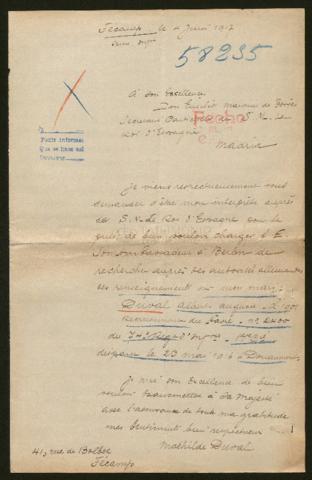 Fécamp le 4 Juin 1917
Seine Infre
58235
A son Excellence
Don Emilio Maria de Torrès
Secrétaire Particulier de S. M. le
Roi d'Espagne
Fecho
Madrid
Je viens respectueusement vous
demander d'être mon interprète auprès
de S. M. le Roi d'Espagne sur le
de bien vouloir charger S. E.
Son Ambassadeur à Berlin de
rechercher auprès des autorités allemandes
des renseignements sur mon mari
Duval
recrutement du Havre, n° 2400
du 74e Régt d'Infrie
disparu le 23 mai 1916 à Douaumont
Je prie son Excellence de bien
vouloir transmettre à Sa Majesté
avec l'assurance de toute ma gratitude
mes sentiments bien respectueux
Mathilde Duval
41, rue de Bolbec
Fécamp